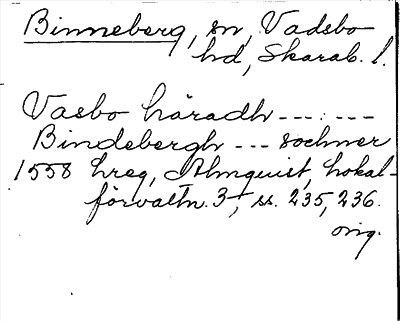 Binneberg, sn, Vadsbo
hd, Skarab. l.
Vasbo häradh --- . ---
Bindebergh --- sochner
1558 hreg, Almquist, Lokal-
förvaltn. 3, ss. 235, 236.
orig.